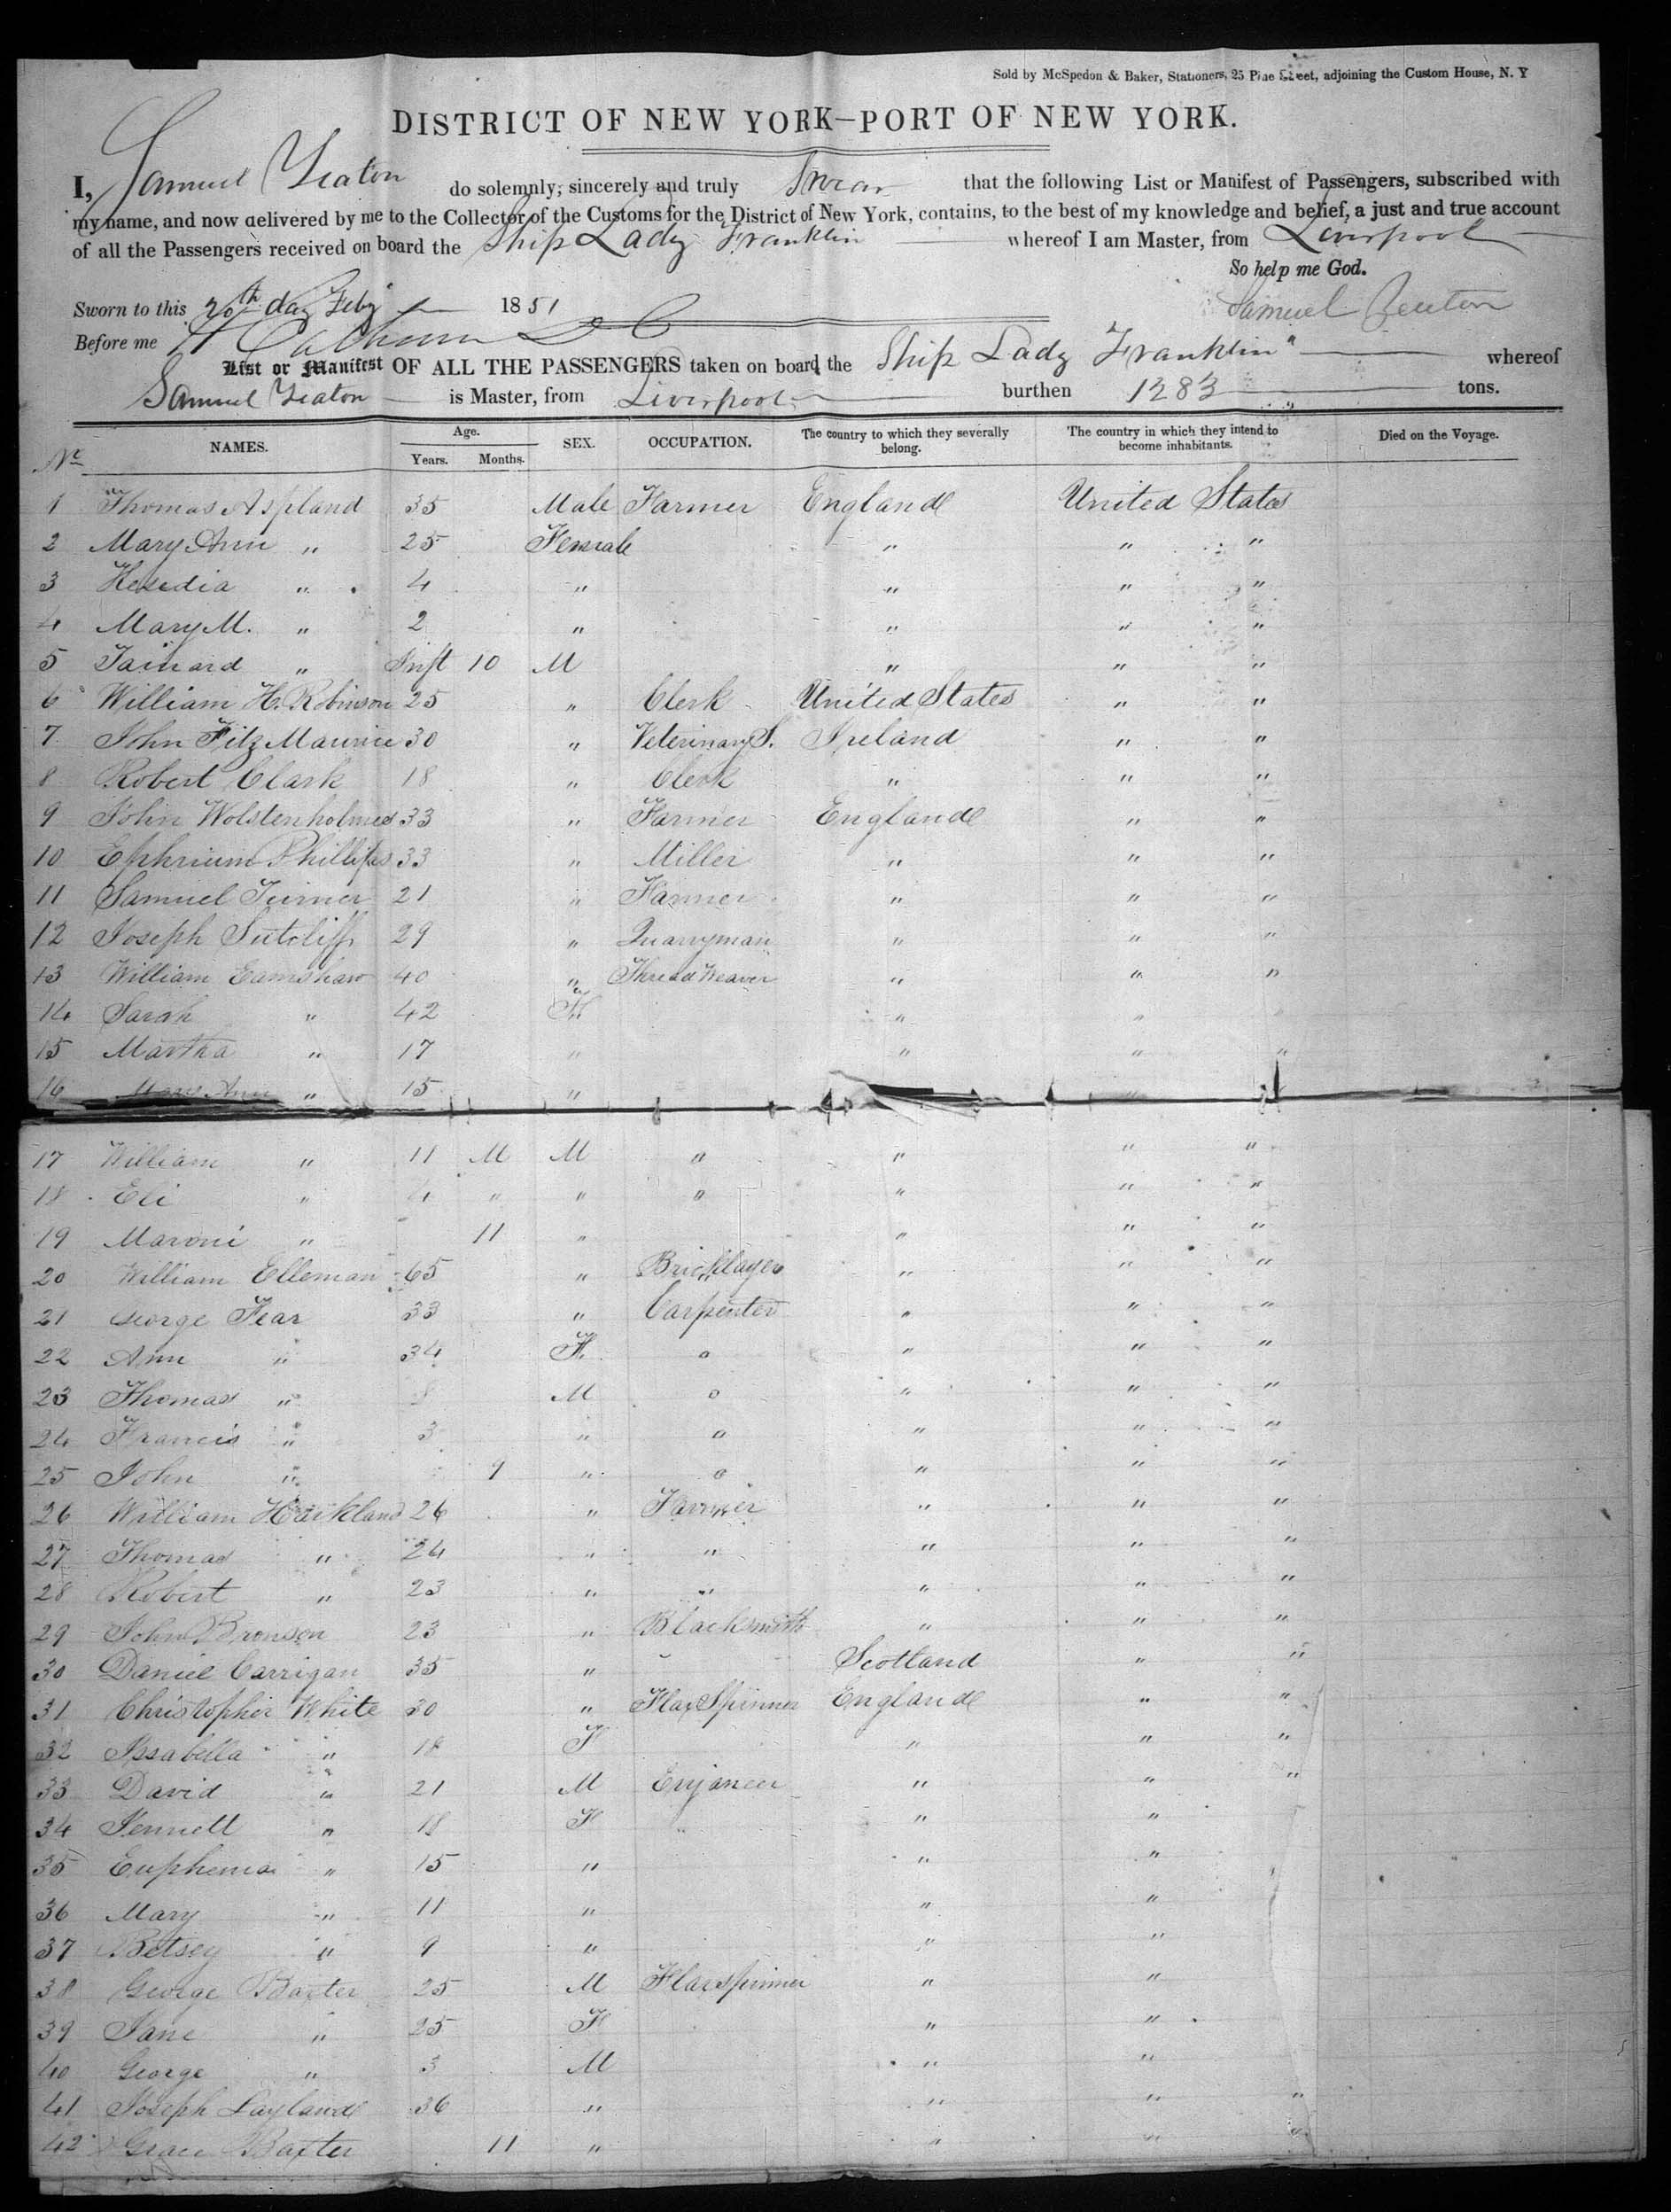 Sold by McSpedon & Baker, Stationers, 25 Pine Street, adjoining the Custom House, N. Y
DISTRICT OF NEW YORK—PORT OF NEW YORK.
I, Samuel Yeaton do solemnly, sincerely and truly Swear that the following List or Manifest of Passengers, subscribed with
my name, and now delivered by me to the Collector of the Customs for the District of New York, contains, to the best of my knowledge and belief, a just and true account
of all the Passengers received on board the Ship Lady Franklin whereof I am Master, from Liverpool
So help me God.
Sworn to this 20th day Feby 1851 Samuel Yeaton
Before me
List or Manifest OF ALL THE PASSENGERS taken on board the Ship Lady Franklin" whereof
Samuel Yeaton is Master, from Liverpool burthen 1283 tons.
No NAMES. Age. Years. Months. SEX. OCCUPATION. The country to which they severally belong. The country in which they intend to become inhabitants. Died on the Voyage.
1 Thomas Aspland 35 Male Farmer England United States
2 Mary Ann " 25 Female " " "
3 Hesedia " 4 " " " "
4 Mary M. " 2 " " " "
5 " Inft 10 M " " "
6 William H. Robinson 25 " Clerk United States " "
7 John Fitz Maurice 30 " Veterinary S. Ireland " "
8 Robert Clark 18 " Clerk " " "
9 John Wolstenholmes 33 " Farmer England " "
10 Ephrium Phillips 33 " Miller " " "
11 Samuel Turner 21 " Farmer " " "
12 Joseph Sutcliff 29 " Quarryman " " "
13 William Earnshaw 40 " Thread Weaver " " "
14 Sarah " 42 F. " "
15 Martha " 17 " " " "
16 Mary Ann " 15 " "
17 William " 11 M M " " " "
18 Eli " 4 " " " " " "
19 Maroni " 11 " " " "
20 William Elleman 65 " Bricklayer " " "
21 George Fear 33 " Carpenter " " "
22 Ann " 34 F. o " " "
23 Thomas " 8 M o " " "
24 Francis " 3 " o " " "
25 John " 9 " o " " "
26 William 26 " Farmer " " "
27 Thomas " 24 " " " " "
28 Robert " 23 " " " " "
29 John Bronson 23 " Blacksmith " " "
30 Daniel Carrigan 35 " - Scotland " "
31 Christopher White 30 " Flax Spinner England " "
32 Issabella " 18 F " " "
33 David " 21 M Enjoneer " " "
34 Jennett " 18 F " "
35 Euphema " 15 " " "
36 Mary " 11 " " "
37 Betsey " 9 " " "
38 George Baxter 25 M Flaxspinner " "
39 Jane " 25 F " "
40 George " 3 M " "
41 Joseph Layland 36 " " " "
42 Grace Baxter 11 " " " "